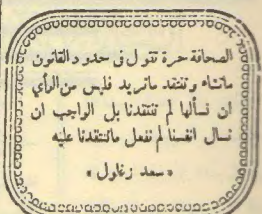 الصحافة حرة تقول فى حدود القانون
ماتشاء وتنتقد ماتريد فليس من الرأي
ان نسألها لم تنتقدنا بل الواجب ان
نسأل انفسنا لم نفعل ماتنتقدنا عليه
« سعد زغلول »